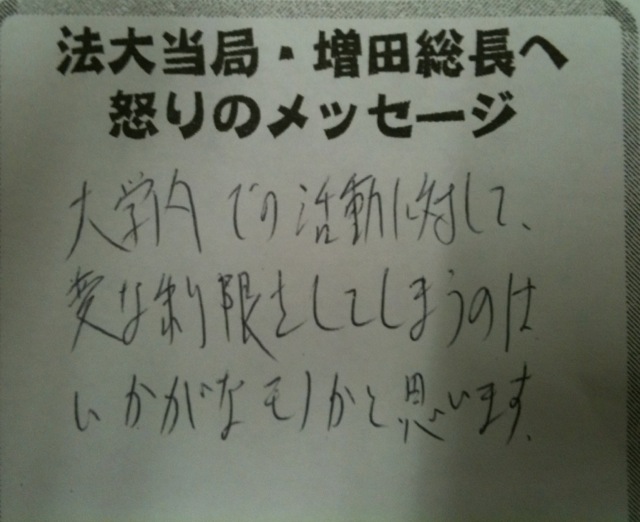 法大当局・増田総長へ
怒りのメッセージ
大学内での活動に対して、
変な制限をしてしまうのは
いかがなモノかと思います.